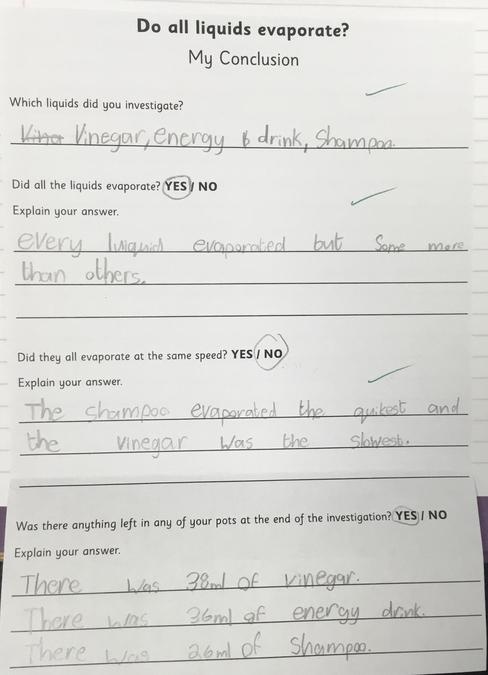 Do all liquids evaporate?
My Conclusion
Which liquids did you investigate?
Vinegar, energy drink, Shampoo.
Did all the liquids evaporate? YES / NO
Explain your answer.
every evaporated but Some more
than others.
Did they all evaporate at the same speed? YES / NO
Explain your answer.
The shampoo evaporated the quikest and
the vinegar was the slowest.
Was there anything left in any of your pots at the end of the investigation? YES / NO
Explain your answer.
There was 38ml of vinegar.
There was 36ml of energy drink.
There was 26ml of Shampoo.